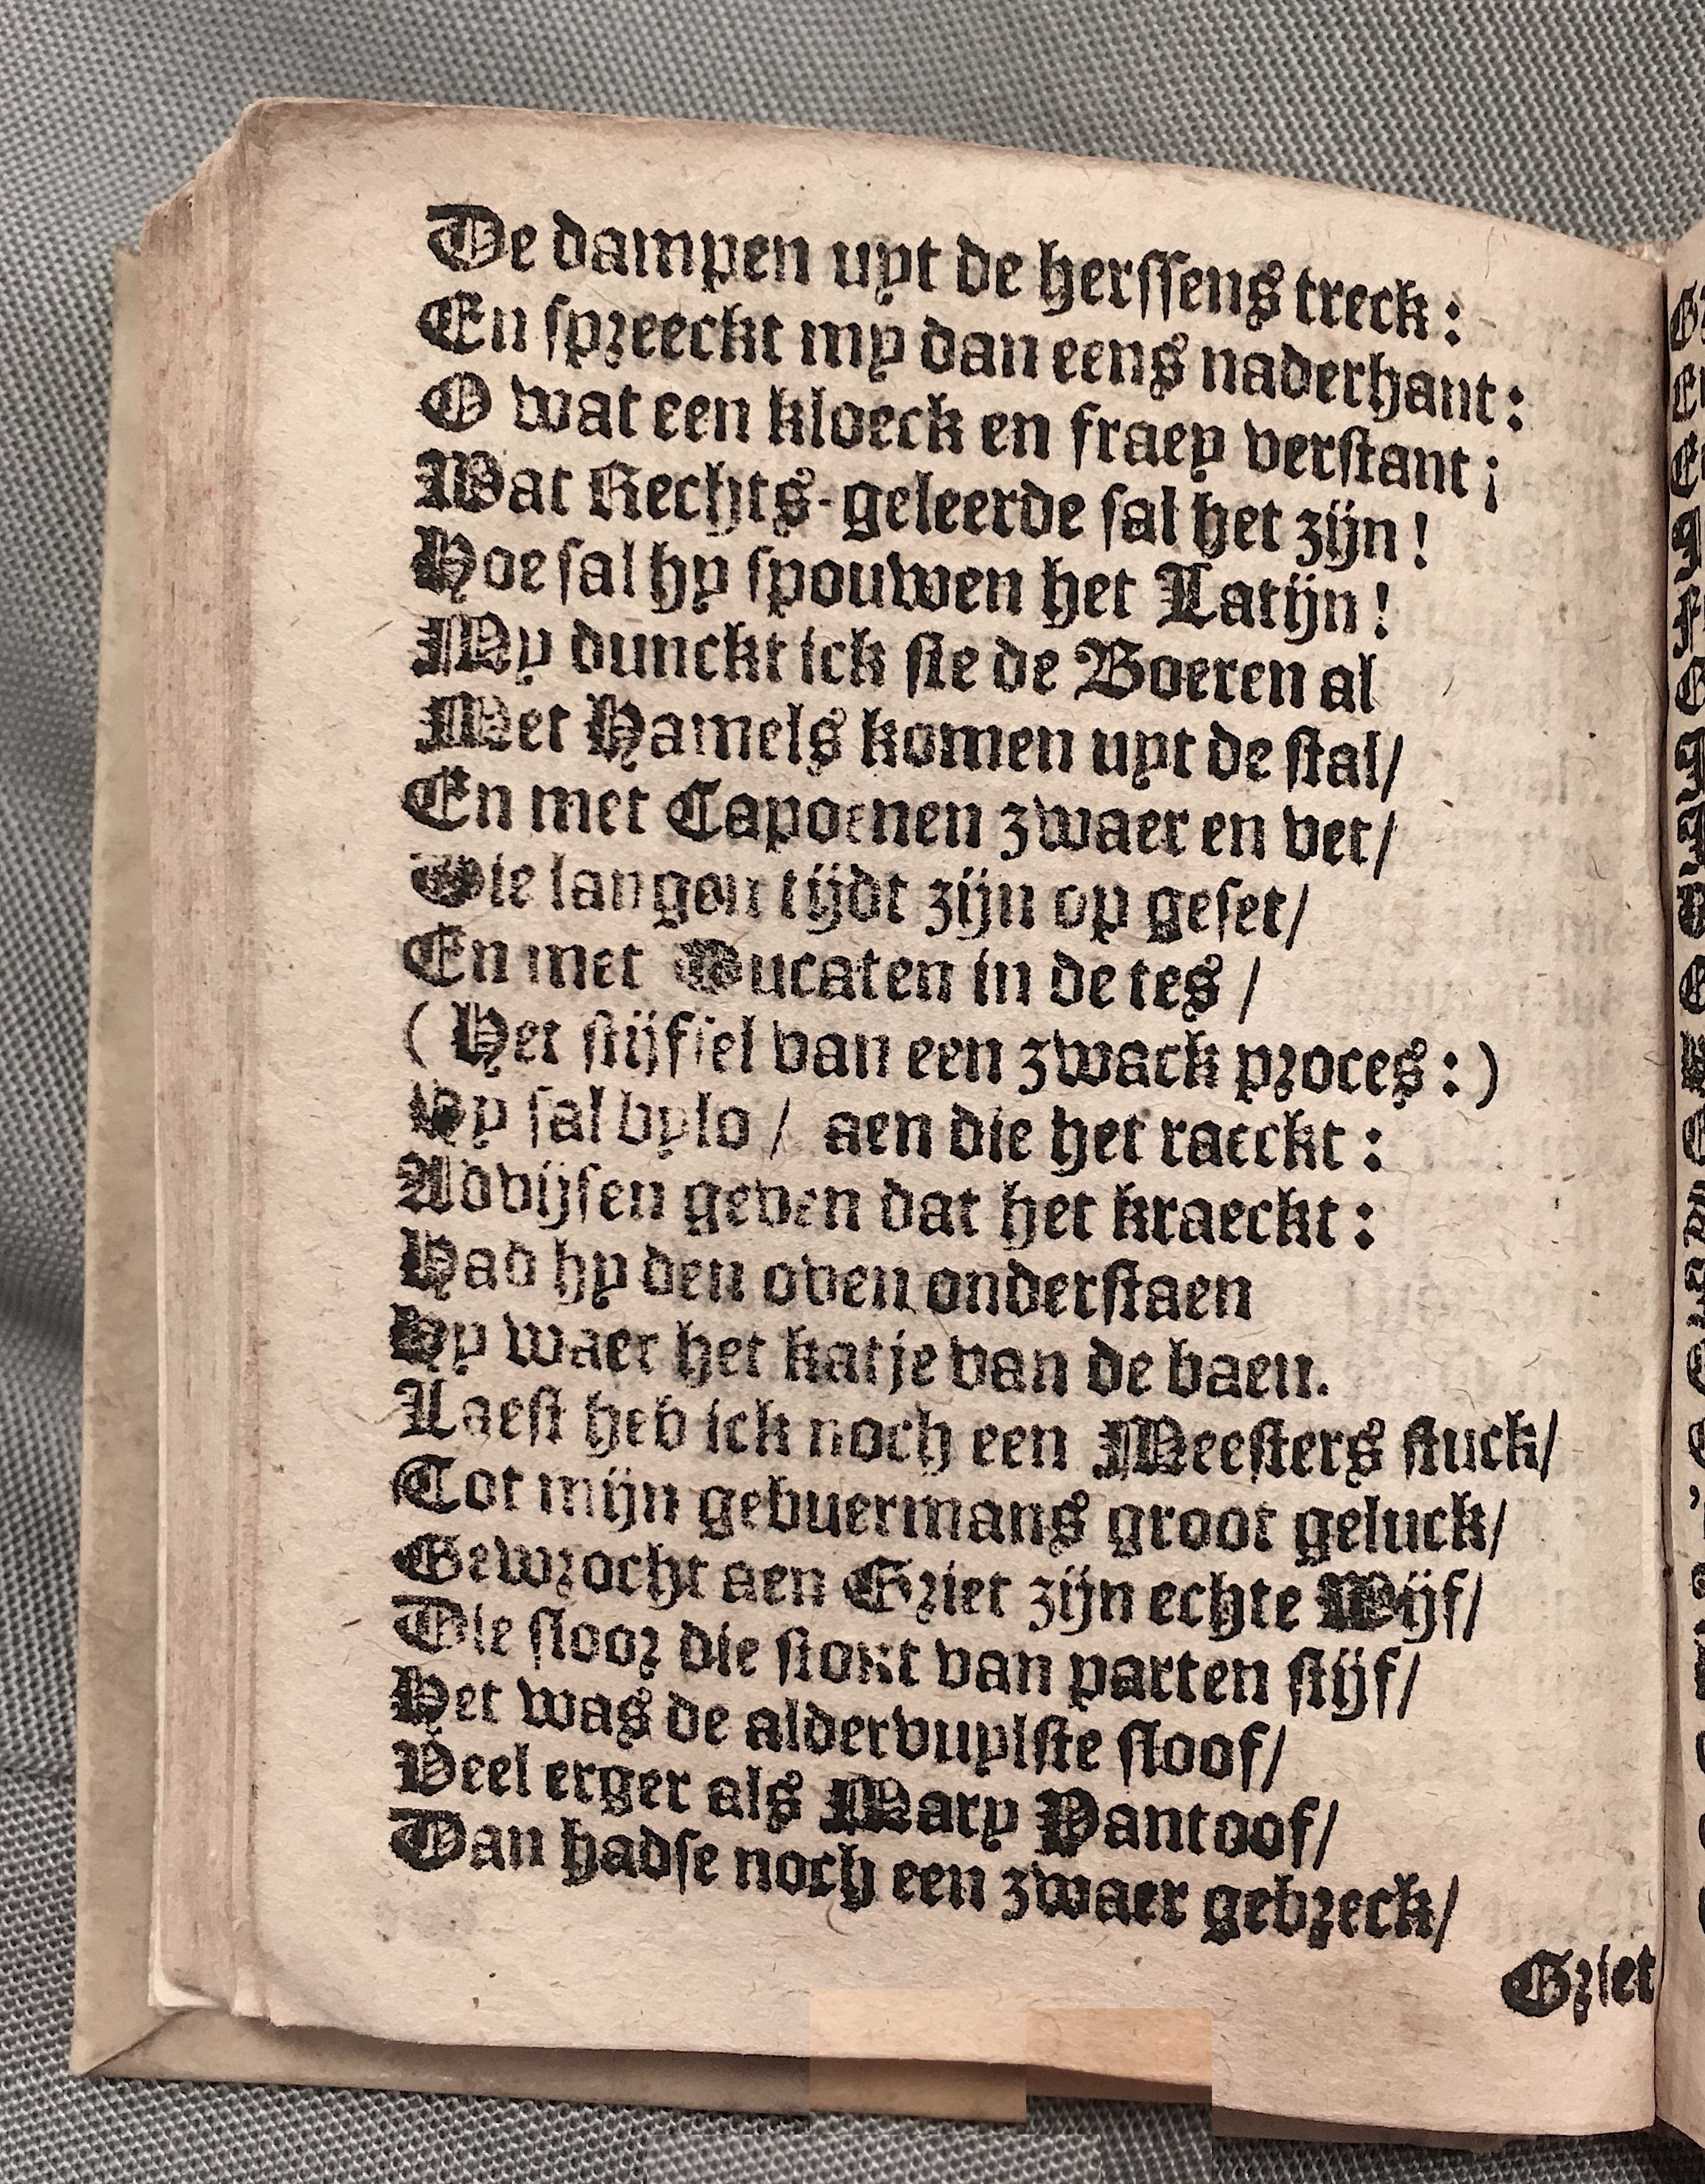 De dampen uyt de herssens treck:
En spreeckt my dan eens naderhant:
O wat een kloeck en fraey verstant;
Wat Rechts-geleerde sal het zijn!
Hoe sal hy spouwen het Latijn!
My dunckt ick sie de Boeren al
Met Hamels komen uyt de stal/
En met Capoenen zwaer en vet/
Die langen tijdt zijn op geset/
En met Ducaten in de tes /
( Het stijfsel van een zwack proces:)
Hy sal bylo / aen die het raeckt:
Advijsen geven dat het kraeckt:
Had hy den oven onderstaen
Hy waer het katje van de baen.
Laest heb ick noch een Meesters stuck/
Tot mijn gebuermans groot geluck/
Gewrocht aen Griet zijn echte Wijf/
Die sloor die stont van parten stijf/
Het was de aldervuylste sloof/
Veel erger als Mary Pantoof/
Dan hadse noch een zwaer gebreck/
Griet